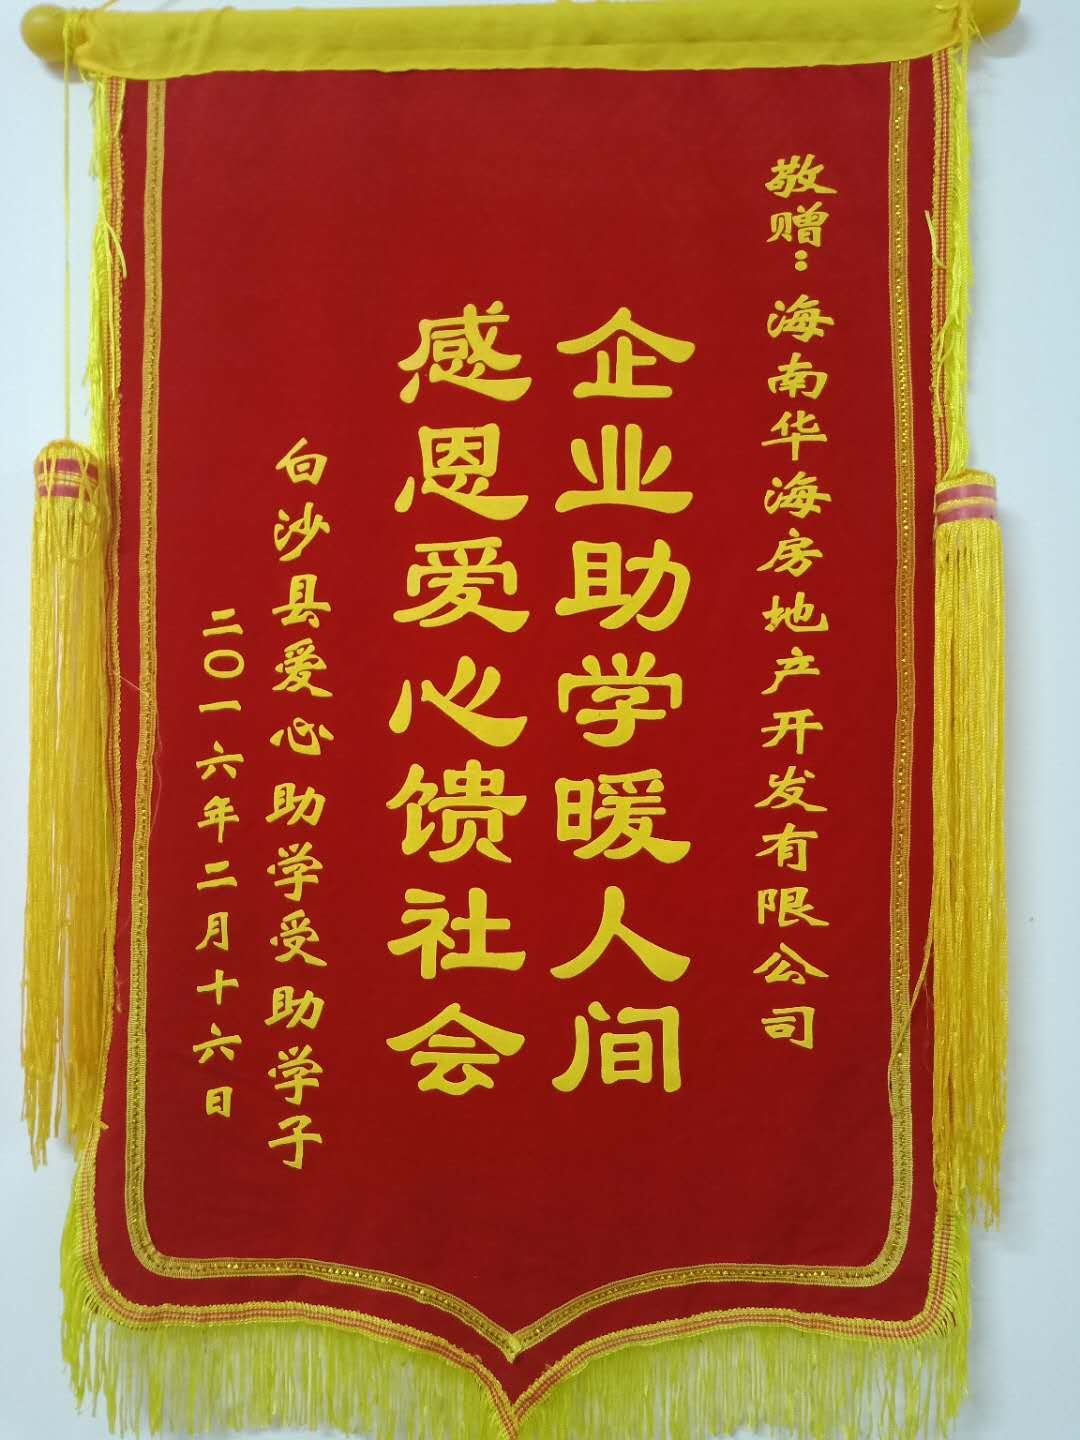 敬赠：海南华海房地产开发有限公司
企业助学暖人间
感恩爱心馈社会
白沙县爱心助学受助学子
二〇一六年二月十六日